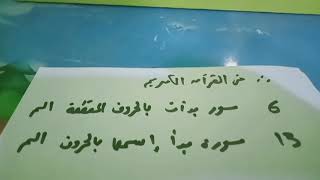 من القرآن الكريم
6 سور بدأت بالحروف المتقطعة الم
13 سورة مبدأ إسمها بالحروف الم